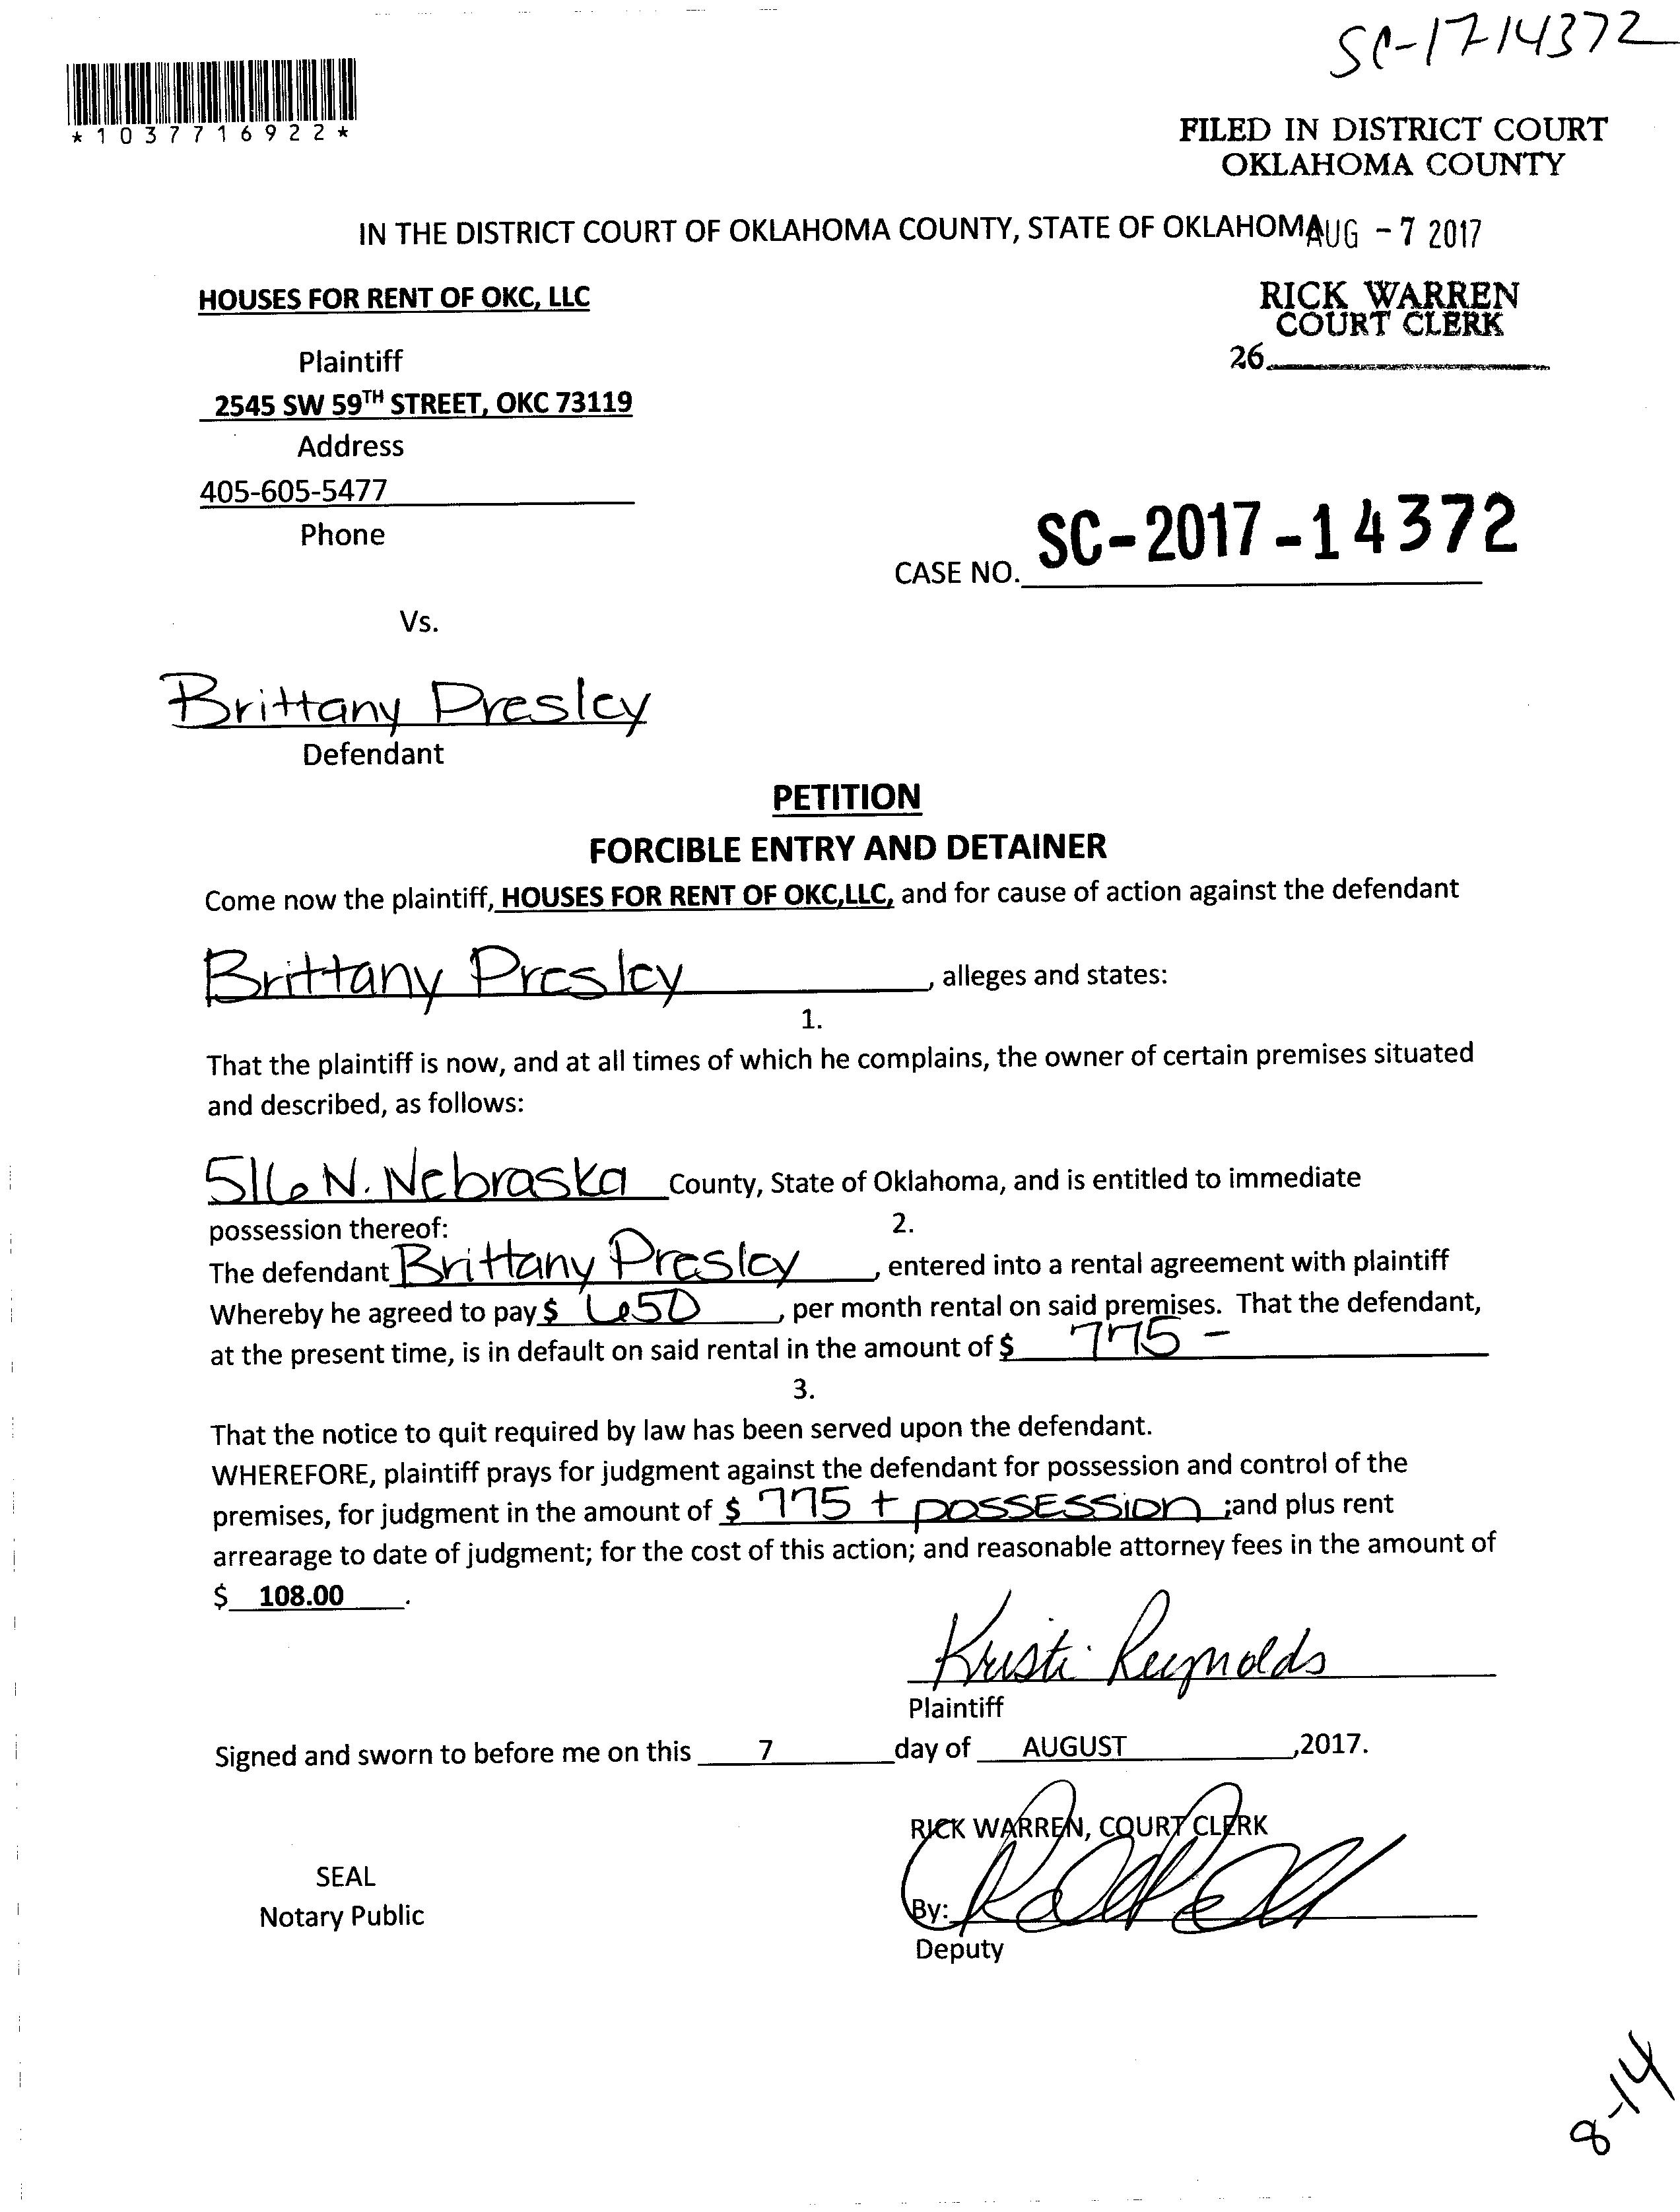 SC-17-14372
*1037716922*
FILED IN DISTRICT COURT
OKLAHOMA COUNTY
IN THE DISTRICT COURT OF OKLAHOMA COUNTY, STATE OF OKLAHOMA AUG - 7 2017
HOUSES FOR RENT OF OKC, LLC
RICK WARREN
COURT CLERK
Plaintiff
26
2545 SW 59TH STREET, OKC 73119
Address
405-605-5477
Phone
CASE NO. SC-2017-14372
Vs.
Brittany Presley
Defendant
PETITION
FORCIBLE ENTRY AND DETAINER
Come now the plaintiff, HOUSES FOR RENT OF OKC,LLC, and for cause of action against the defendant
Brittany Presley, alleges and states:
1.
That the plaintiff is now, and at all times of which he complains, the owner of certain premises situated
and described, as follows:
516 N. Nebraska County, State of Oklahoma, and is entitled to immediate
possession thereof:
2.
The defendant Brittany Presley, entered into a rental agreement with plaintiff
Whereby he agreed to pay $ 650, per month rental on said premises. That the defendant,
at the present time, is in default on said rental in the amount of $ 775-
3.
That the notice to quit required by law has been served upon the defendant.
WHEREFORE, plaintiff prays for judgment against the defendant for possession and control of the
premises, for judgment in the amount of $ 775 + POSSESSION ;and plus rent
arrearage to date of judgment; for the cost of this action; and reasonable attorney fees in the amount of
$ 108.00.
Kristi Reynolds
Plaintiff
Signed and sworn to before me on this 7 day of AUGUST ,2017.
RICK WARREN, COURT CLERK
SEAL
Notary Public
By:
Deputy
8-14